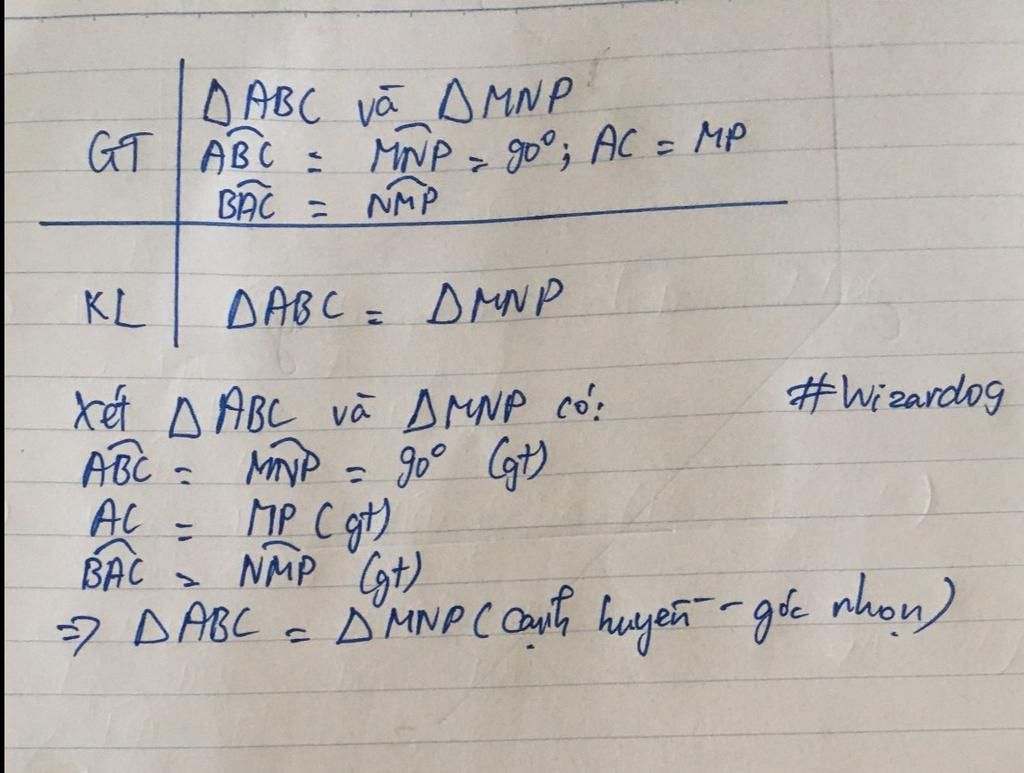 △ABC và △MNP
GT
\widehat{ABC} = \widehat{MNP} = 90°; AC = MP
\widehat{BAC} = \widehat{NMP}
KL △ABC = △MNP
Xét △ABC và △MNP có:
#Wizardog
\widehat{ABC} = \widehat{MNP} = 90° (gt)
AC = MP (gt)
\widehat{BAC} = \widehat{NMP} (gt)
⇒ △ABC = △MNP (cạnh huyền - góc nhọn)